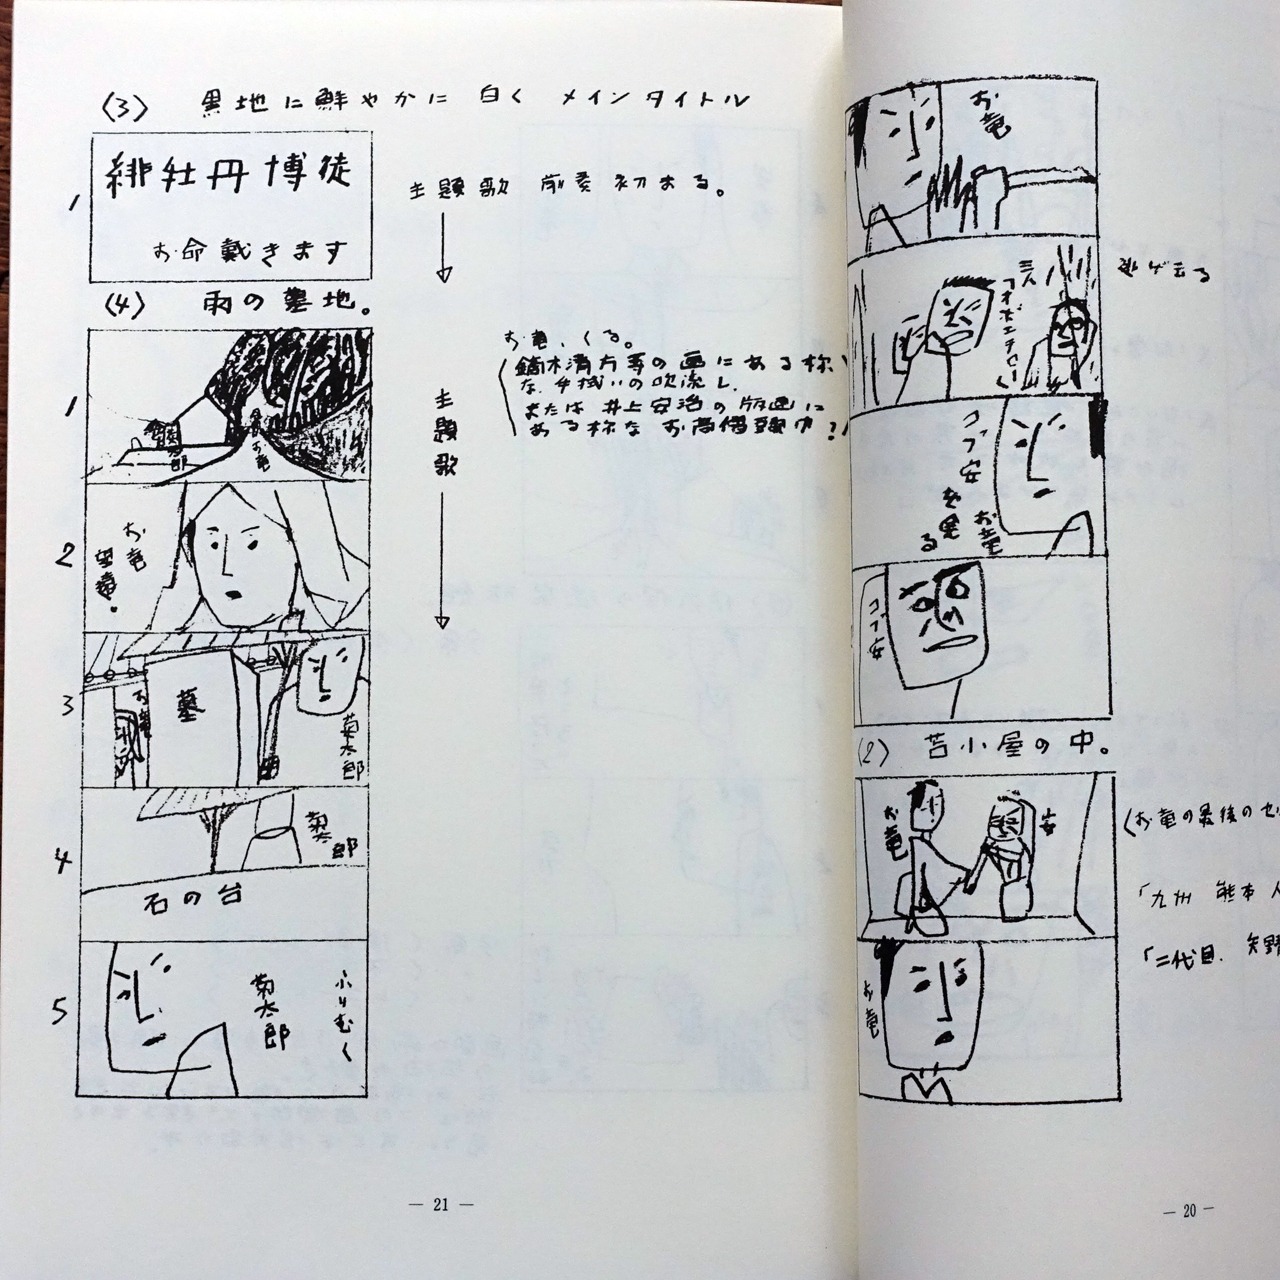 お竜
逃げ去る
三人
「オボエテヤー」
コブ安
を見る
お竜
コブ安
(2) 苫小屋の中。
お竜
安
(お竜の最後のセ
「九州 熊本 人
「二代目. 矢野
お竜
— 20 —
(3) 黒地に鮮やかに 白く メインタイトル
1
緋牡丹博徒
お命戴きます
主題歌 前奏初まる。
(4) 雨の墓地。
1
お竜
お竜、くる。
(鏑木清方等の画にある様
な、手拭いの吹流し、
または 井上安治の版画に
ある様な お高僧頭巾?)
主題歌
2
お竜
望遠。
3
お竜
墓
菊太郎
4
菊太郎
石の台
5
菊太郎
ふりむく
— 21 —